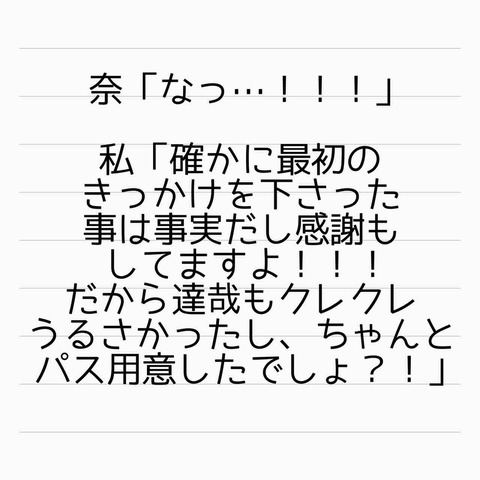 奈「なっ…！！！」
私「確かに最初の
きっかけを下さった
事は事実だし感謝も
してますよ！！！
だから達哉もクレクレ
うるさかったし、ちゃんと
パス用意したでしょ？！」